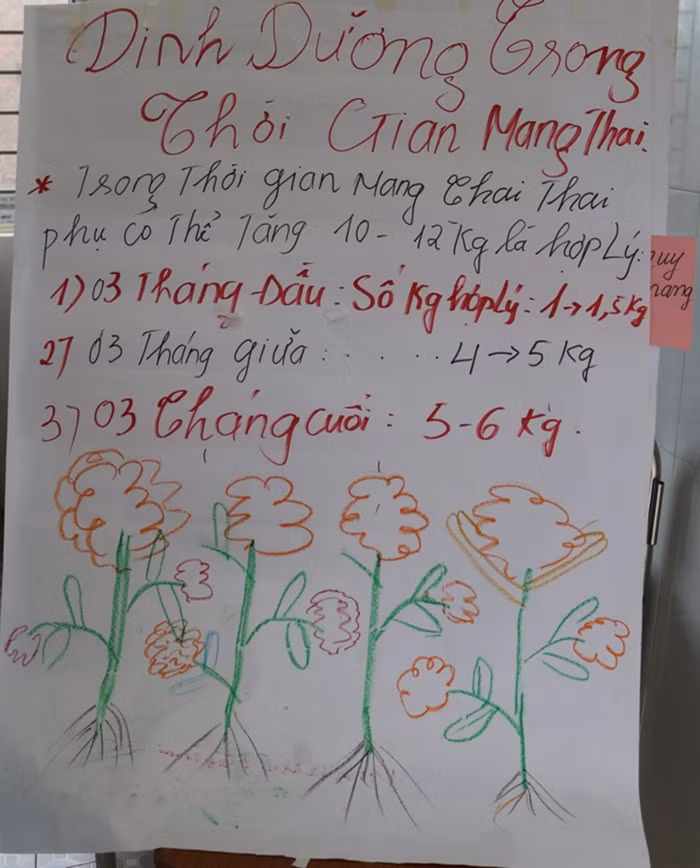 Dinh Dưỡng Trong
Thời Gian Mang Thai.
* Trong Thời gian Mang Thai Thai
phụ có Thể Tăng 10 - 12 Kg là hợp Lý:
1) 03 Tháng Đầu: Số Kg hợp Lý: 1→1,5 Kg
2) 03 Tháng giữa : . . . . . 4→5 Kg
3) 03 Tháng cuối: 5-6 Kg.